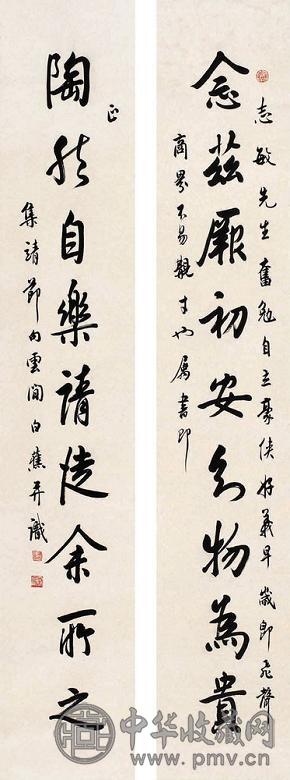 志敏先生奮勉自立豪俠好義早歲即飛聲
念茲厥初安知物為貴
商界不易覯才也屬書即
正
陶然自樂請從余所之
集靖節句雲間白蕉并識
中华收藏网
www.pmv.cn